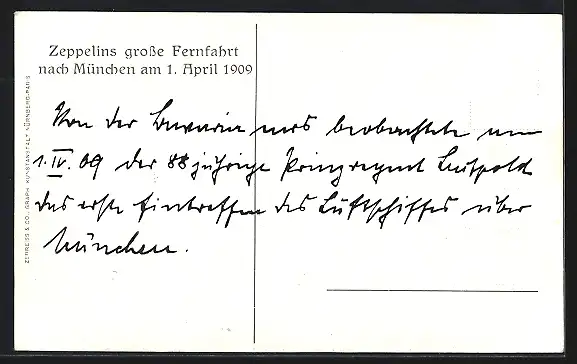 Zeppelins große Fernfahrt
nach München am 1. April 1909
Von der Bavaria aus beobachtete am
1.IV.09 der 88 jährige Prinzregent Luitpold
das erste Eintreffen des Luftschiffes über
München.
ZERREISS & CO., GRAPH. KUNSTANSTALT, NÜRNBERG-PARIS